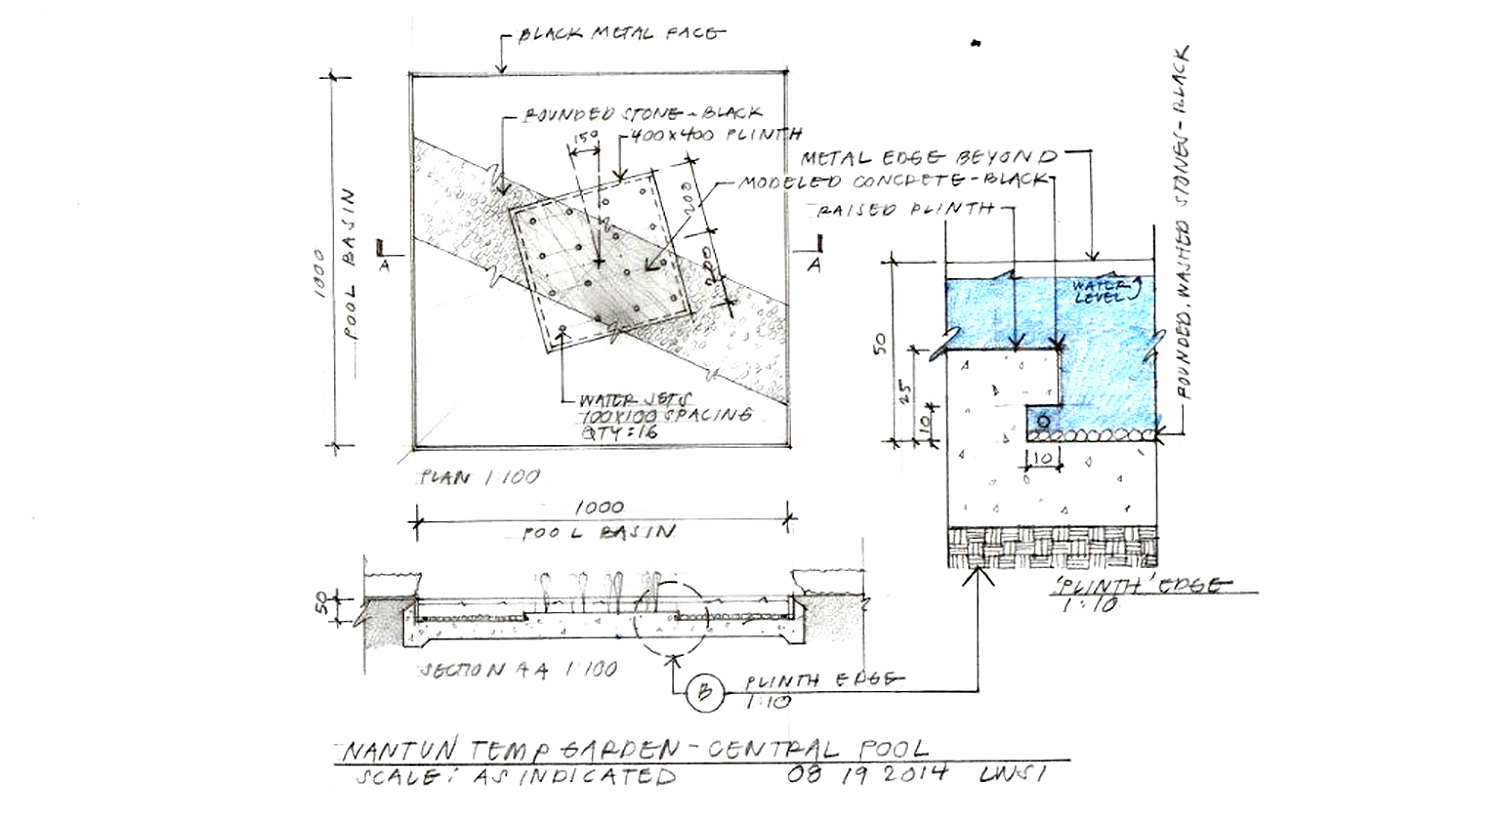 BLACK METAL FACE
ROUNDED STONE - BLACK
15°
400X400 PLINTH
METAL EDGE BEYOND
MODELED CONCRETE - BLACK
RAISED PLINTH
ROUNDED, WASHED STONES - BLACK
1000
POOL BASIN
200
200
A
A
WATER LEVEL
50
25
10
10
WATER JETS
100X100 SPACING
QTY: 16
PLAN 1:100
1000
POOL BASIN
'PLINTH' EDGE
1:10
50
SECTION AA 1:100
B
PLINTH EDGE
1:10
NANTUN TEMP GARDEN - CENTRAL POOL
SCALE: AS INDICATED 08 19 2014